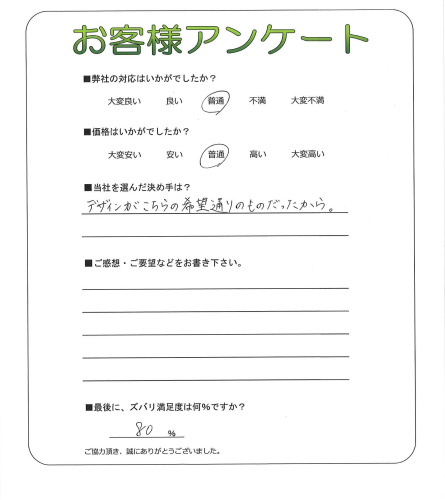 お客様アンケート
■弊社の対応はいかがでしたか？
大変良い 良い 普通 不満 大変不満
■価格はいかがでしたか？
大変安い 安い 普通 高い 大変高い
■当社を選んだ決め手は？
デザインがこちらの希望通りのものだったから。
■ご感想・ご要望などをお書き下さい。
■最後に、ズバリ満足度は何%ですか？
80 %
ご協力頂き、誠にありがとうございました。